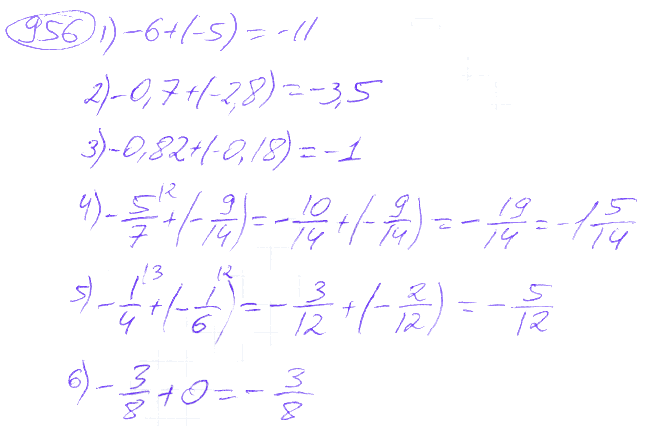 956 1) -6+(-5)=-11
2) -0,7+(-2,8)=-3,5
3) -0,82+(-0,18)=-1
4) -5/7^{|2}+(-9/14)=-10/14+(-9/14)=-19/14=-1 5/14
5) -1/4^{|3}+(-1/6^{|2})=-3/12+(-2/12)=-5/12
6) -3/8+0=-3/8